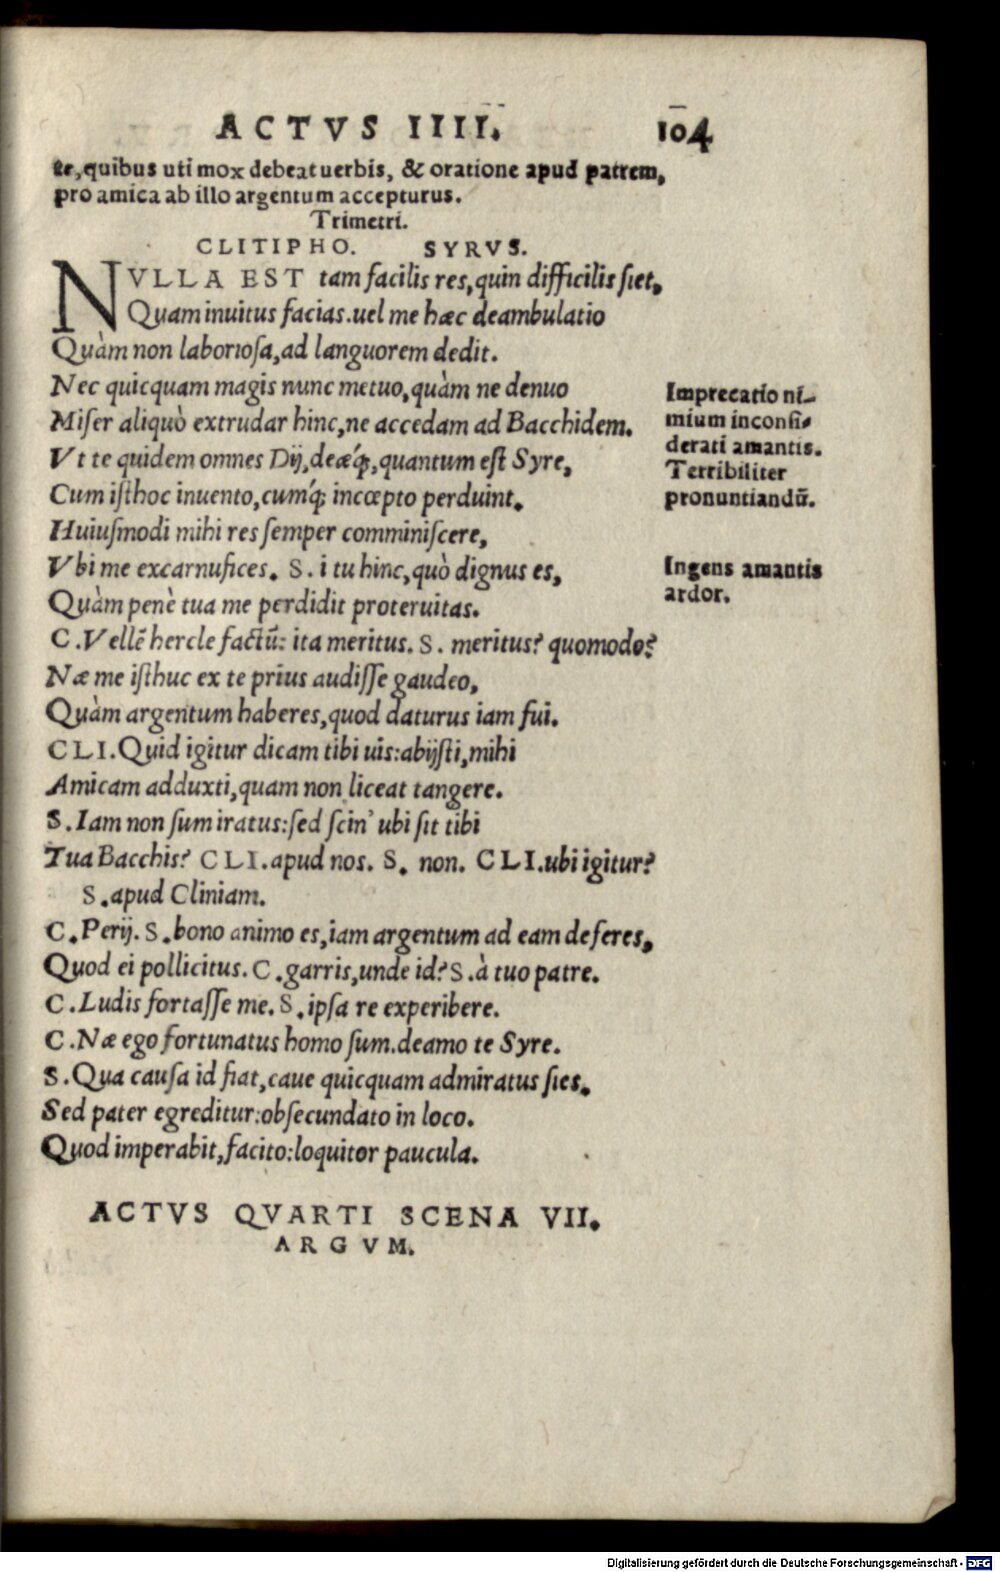 ACTVS IIII. 104
te, quibus uti mox debeat uerbis, & oratione apud patrem,
pro amica ab illo argentum accepturus.
Trimetri.
CLITIPHO. SYRVS.
NVLLA EST tam facilis res, quin difficilis siet,
Quam inuitus facias. uel me hæc deambulatio
Quàm non laboriosa, ad languorem dedit.
Nec quicquam magis nunc metuo, quàm ne denuo
Miser aliquò extrudar hinc, ne accedam ad Bacchidem.
Vt te quidem omnes Dij, deæq́;, quantum est Syre,
Cum isthoc inuento, cumq́; incœpto perduint.
Huiusmodi mihi res semper comminiscere,
Vbi me excarnufices. S. i tu hinc, quò dignus es,
Quàm penè tua me perdidit proteruitas.
C. Vellē hercle factū: ita meritus. S. meritus? quomodo?
Næ me isthuc ex te prius audisse gaudeo,
Quàm argentum haberes, quod daturus iam fui.
CLI. Quid igitur dicam tibi uis: abijsti, mihi
Amicam adduxti, quam non liceat tangere.
S. Iam non sum iratus: sed scin' ubi sit tibi
Tua Bacchis? CLI. apud nos. S. non. CLI. ubi igitur?
S. apud Cliniam.
C. Perij. S. bono animo es, iam argentum ad eam deferes,
Quod ei pollicitus. C. garris, unde id? S. à tuo patre.
C. Ludis fortasse me. S. ipsa re experibere.
C. Næ ego fortunatus homo sum. deamo te Syre.
S. Qua causa id fiat, caue quicquam admiratus sies.
Sed pater egreditur: obsecundato in loco.
Quod imperabit, facito: loquitor paucula.
Imprecatio ni-
mium inconsi-
derati amantis.
Terribiliter
pronuntiandū.
Ingens amantis
ardor.
ACTVS QVARTI SCENA VII.
ARGVM.
Digitalisierung gefördert durch die Deutsche Forschungsgemeinschaft - DFG